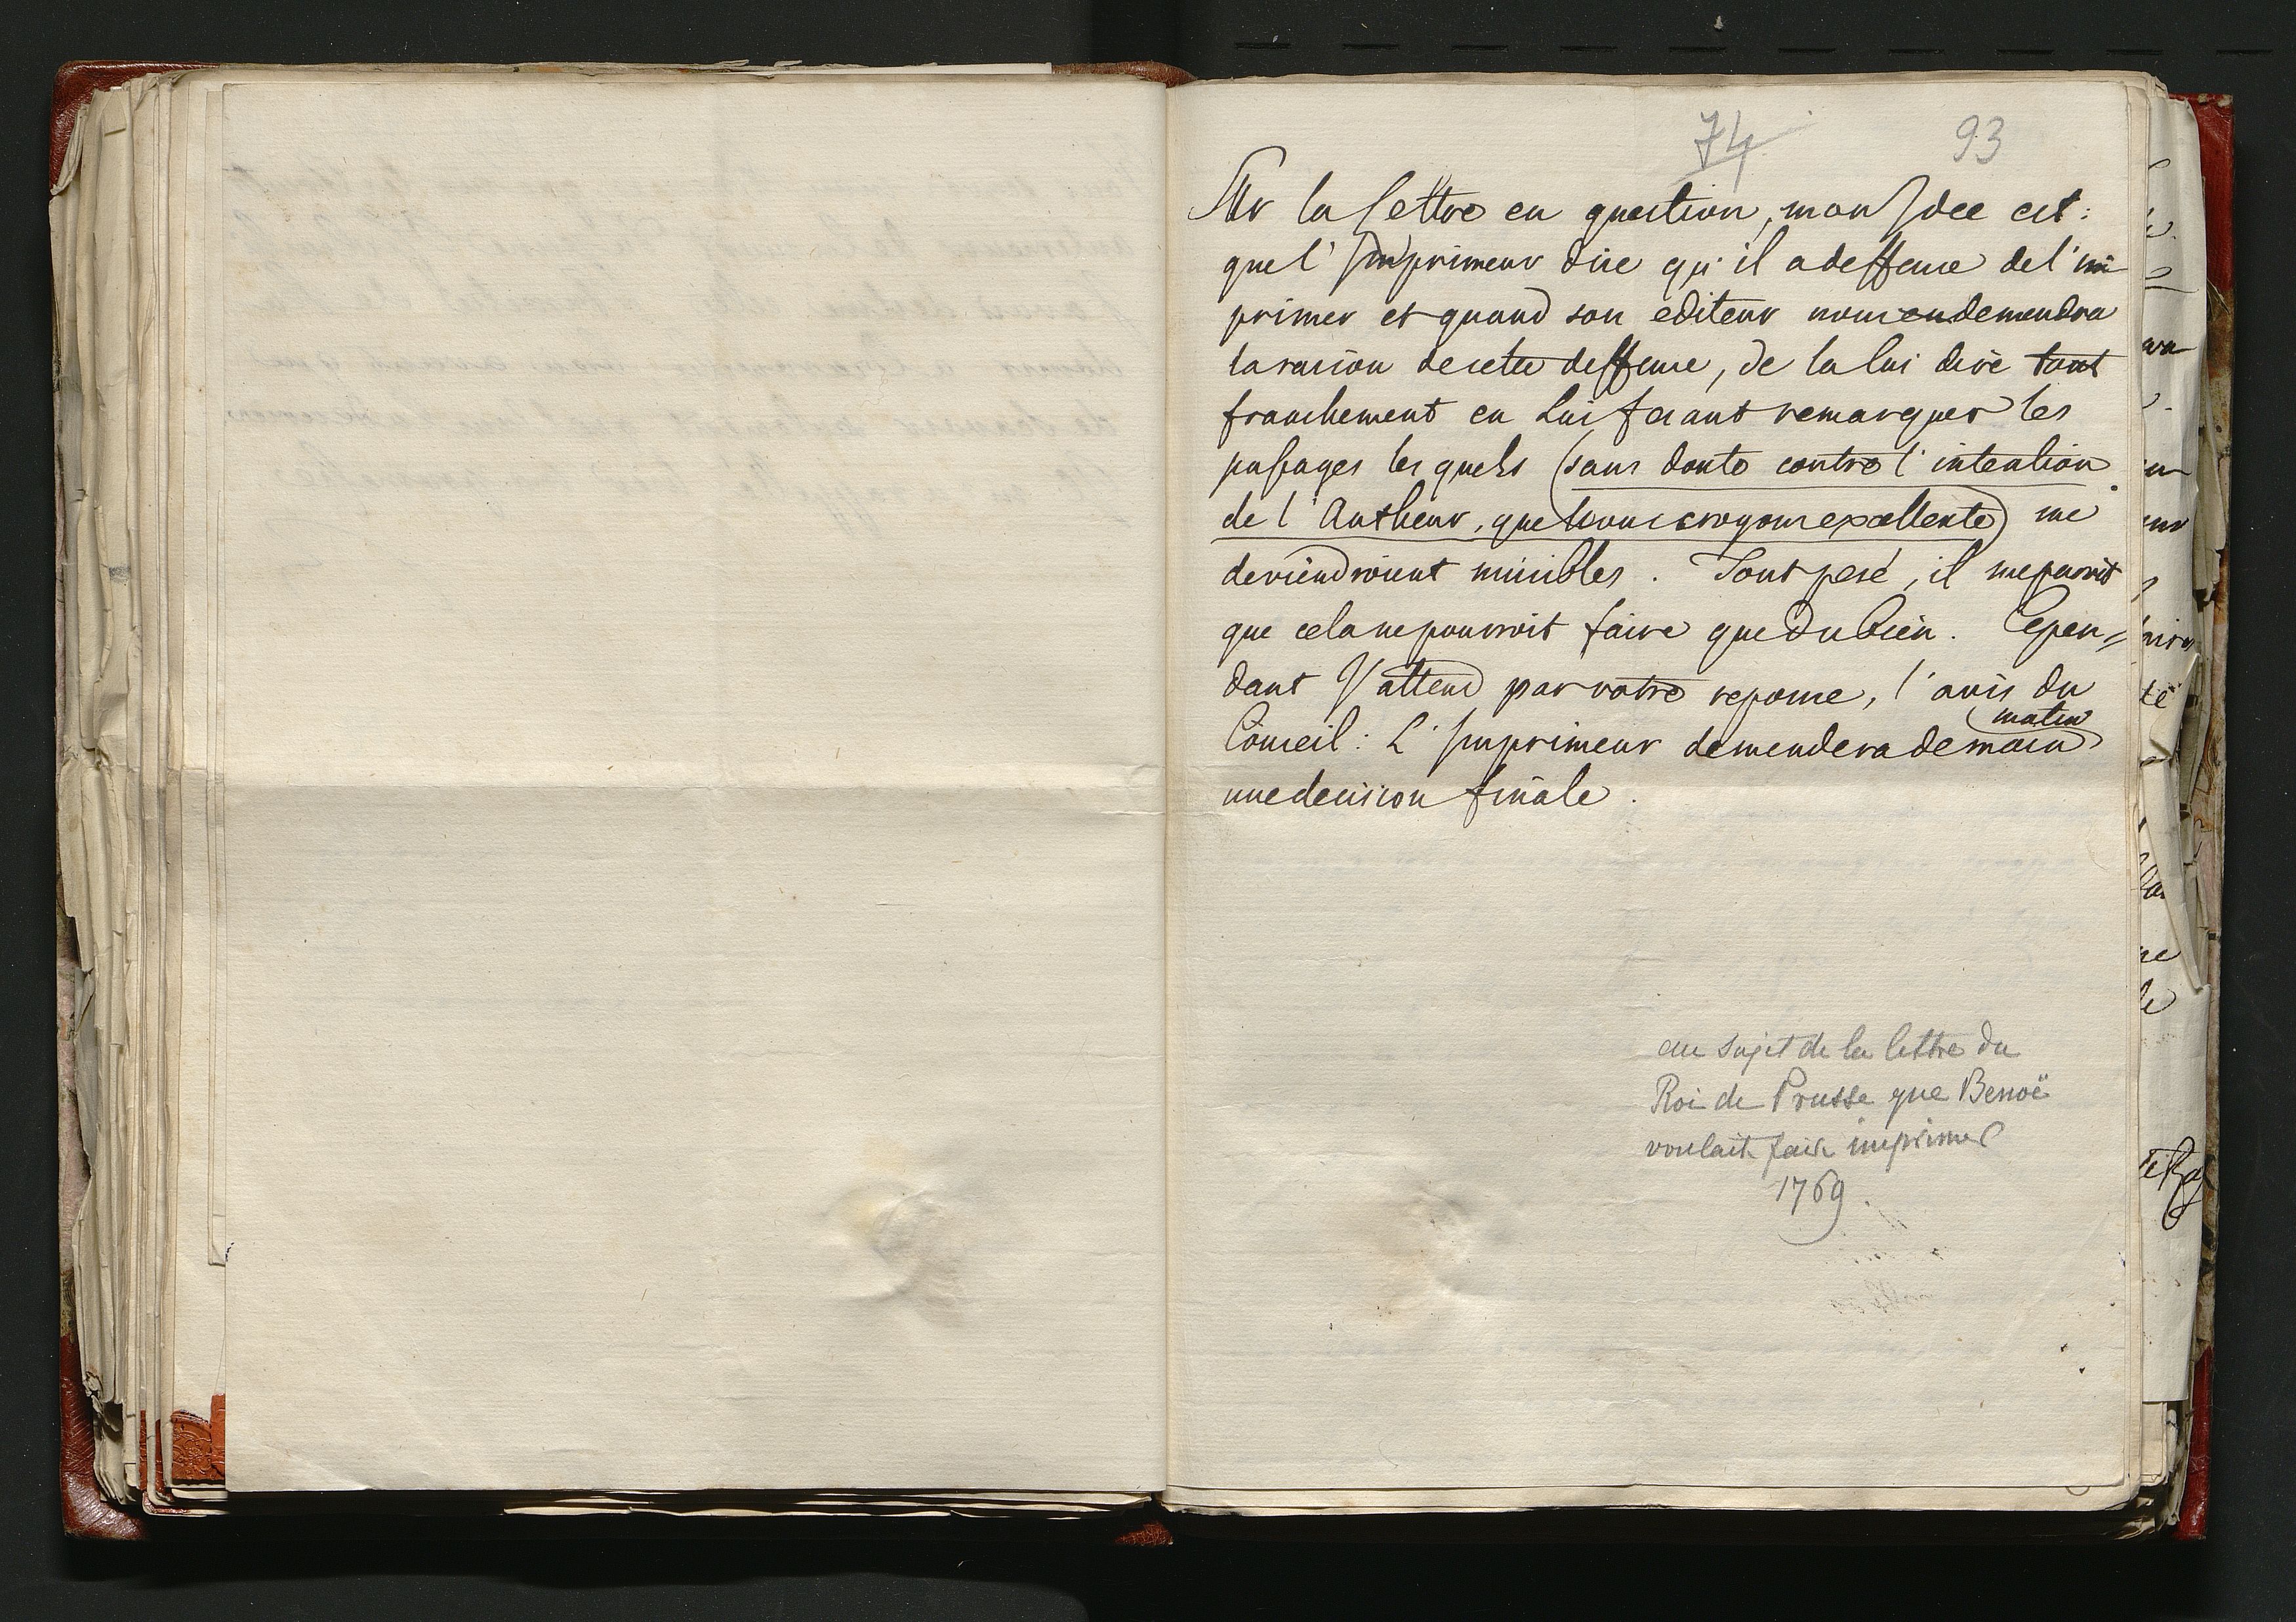 74 93
Sur la Lettre en question, mon Idee est:
que l'Imprimeur dise qu'il a deffense de l'im
primer et quand son editeur nous en demendra
la raison de cette deffense, de la lui dire tout
franchement en lui fesant remarquer les
passages les quels (sans doute contre l'intention
de l'Autheur, que nous croyons excellente) me
deviendroient nuisibles. Tout pesé, il me paroit
que cela ne pourroit faire que du bien. Cepen=
dant J'attend par votre reponse, l'avis du
Conseil: L'Imprimeur demendera demain
matin
une decision finale.
au sujet de la lettre du
Roi de Prusse que Benoë
voulait faire imprimer
1769.